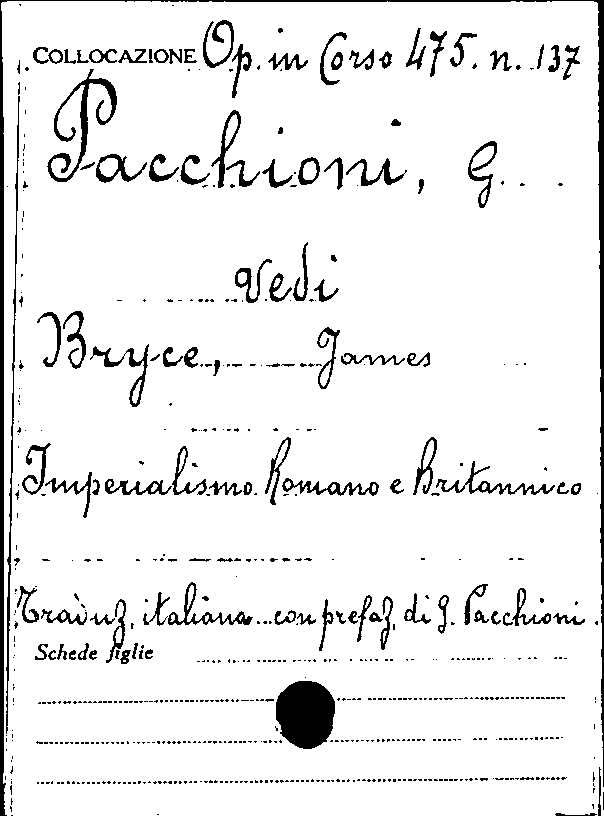 COLLOCAZIONE Op. in Corso 475. n. 137
Pacchioni, G.
Vedi
Bryce, James
Imperialismo Romano e Britannico
Traduz. italiana con prefaz. di G. Pacchioni.
Schede figlie